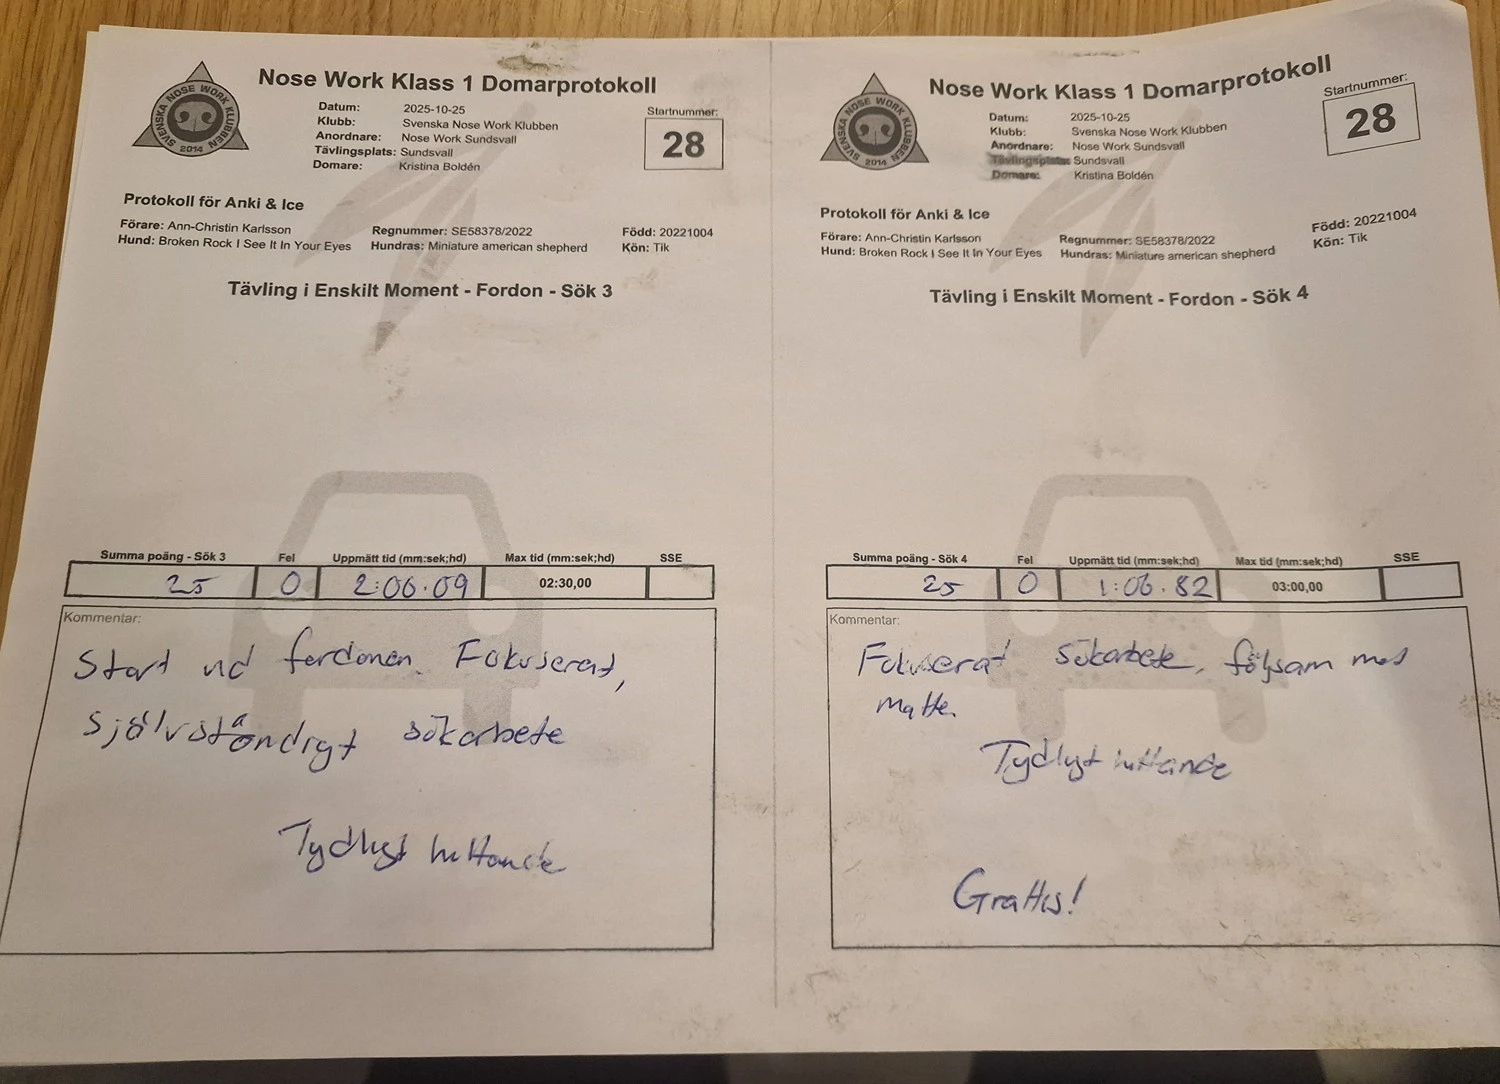 Nose Work Klass 1 Domarprotokoll
SVENSKA NOSE WORK KLUBBEN
2014
Datum: 2025-10-25
Klubb: Svenska Nose Work Klubben
Anordnare: Nose Work Sundsvall
Tävlingsplats: Sundsvall
Domare: Kristina Boldén
Startnummer:
28
Protokoll för Anki & Ice
Förare: Ann-Christin Karlsson Regnummer: SE58378/2022 Född: 20221004
Hund: Broken Rock I See It In Your Eyes Hundras: Miniature american shepherd Kön: Tik
Tävling i Enskilt Moment - Fordon - Sök 3
Summa poäng - Sök 3 Fel Uppmätt tid (mm:sek;hd) Max tid (mm:sek;hd) SSE
25 0 2:06.09 02:30,00
Kommentar:
Start vid fordonen. Fokuserat,
självständigt sökarbete
Tydligt hittande
Nose Work Klass 1 Domarprotokoll
SVENSKA NOSE WORK KLUBBEN
2014
Datum: 2025-10-25
Klubb: Svenska Nose Work Klubben
Anordnare: Nose Work Sundsvall
Tävlingsplats: Sundsvall
Domare: Kristina Boldén
Startnummer:
28
Protokoll för Anki & Ice
Förare: Ann-Christin Karlsson Regnummer: SE58378/2022 Född: 20221004
Hund: Broken Rock I See It In Your Eyes Hundras: Miniature american shepherd Kön: Tik
Tävling i Enskilt Moment - Fordon - Sök 4
Summa poäng - Sök 4 Fel Uppmätt tid (mm:sek;hd) Max tid (mm:sek;hd) SSE
25 0 1:06.82 03:00,00
Kommentar:
Fokuserat sökarbete, följsam med
matte.
Tydligt hittande
Grattis!